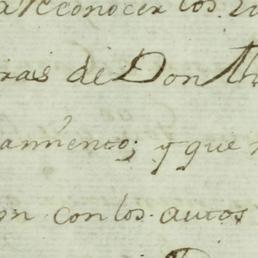 a reconocer los
ras de Don
amiento; y que
on con los autos